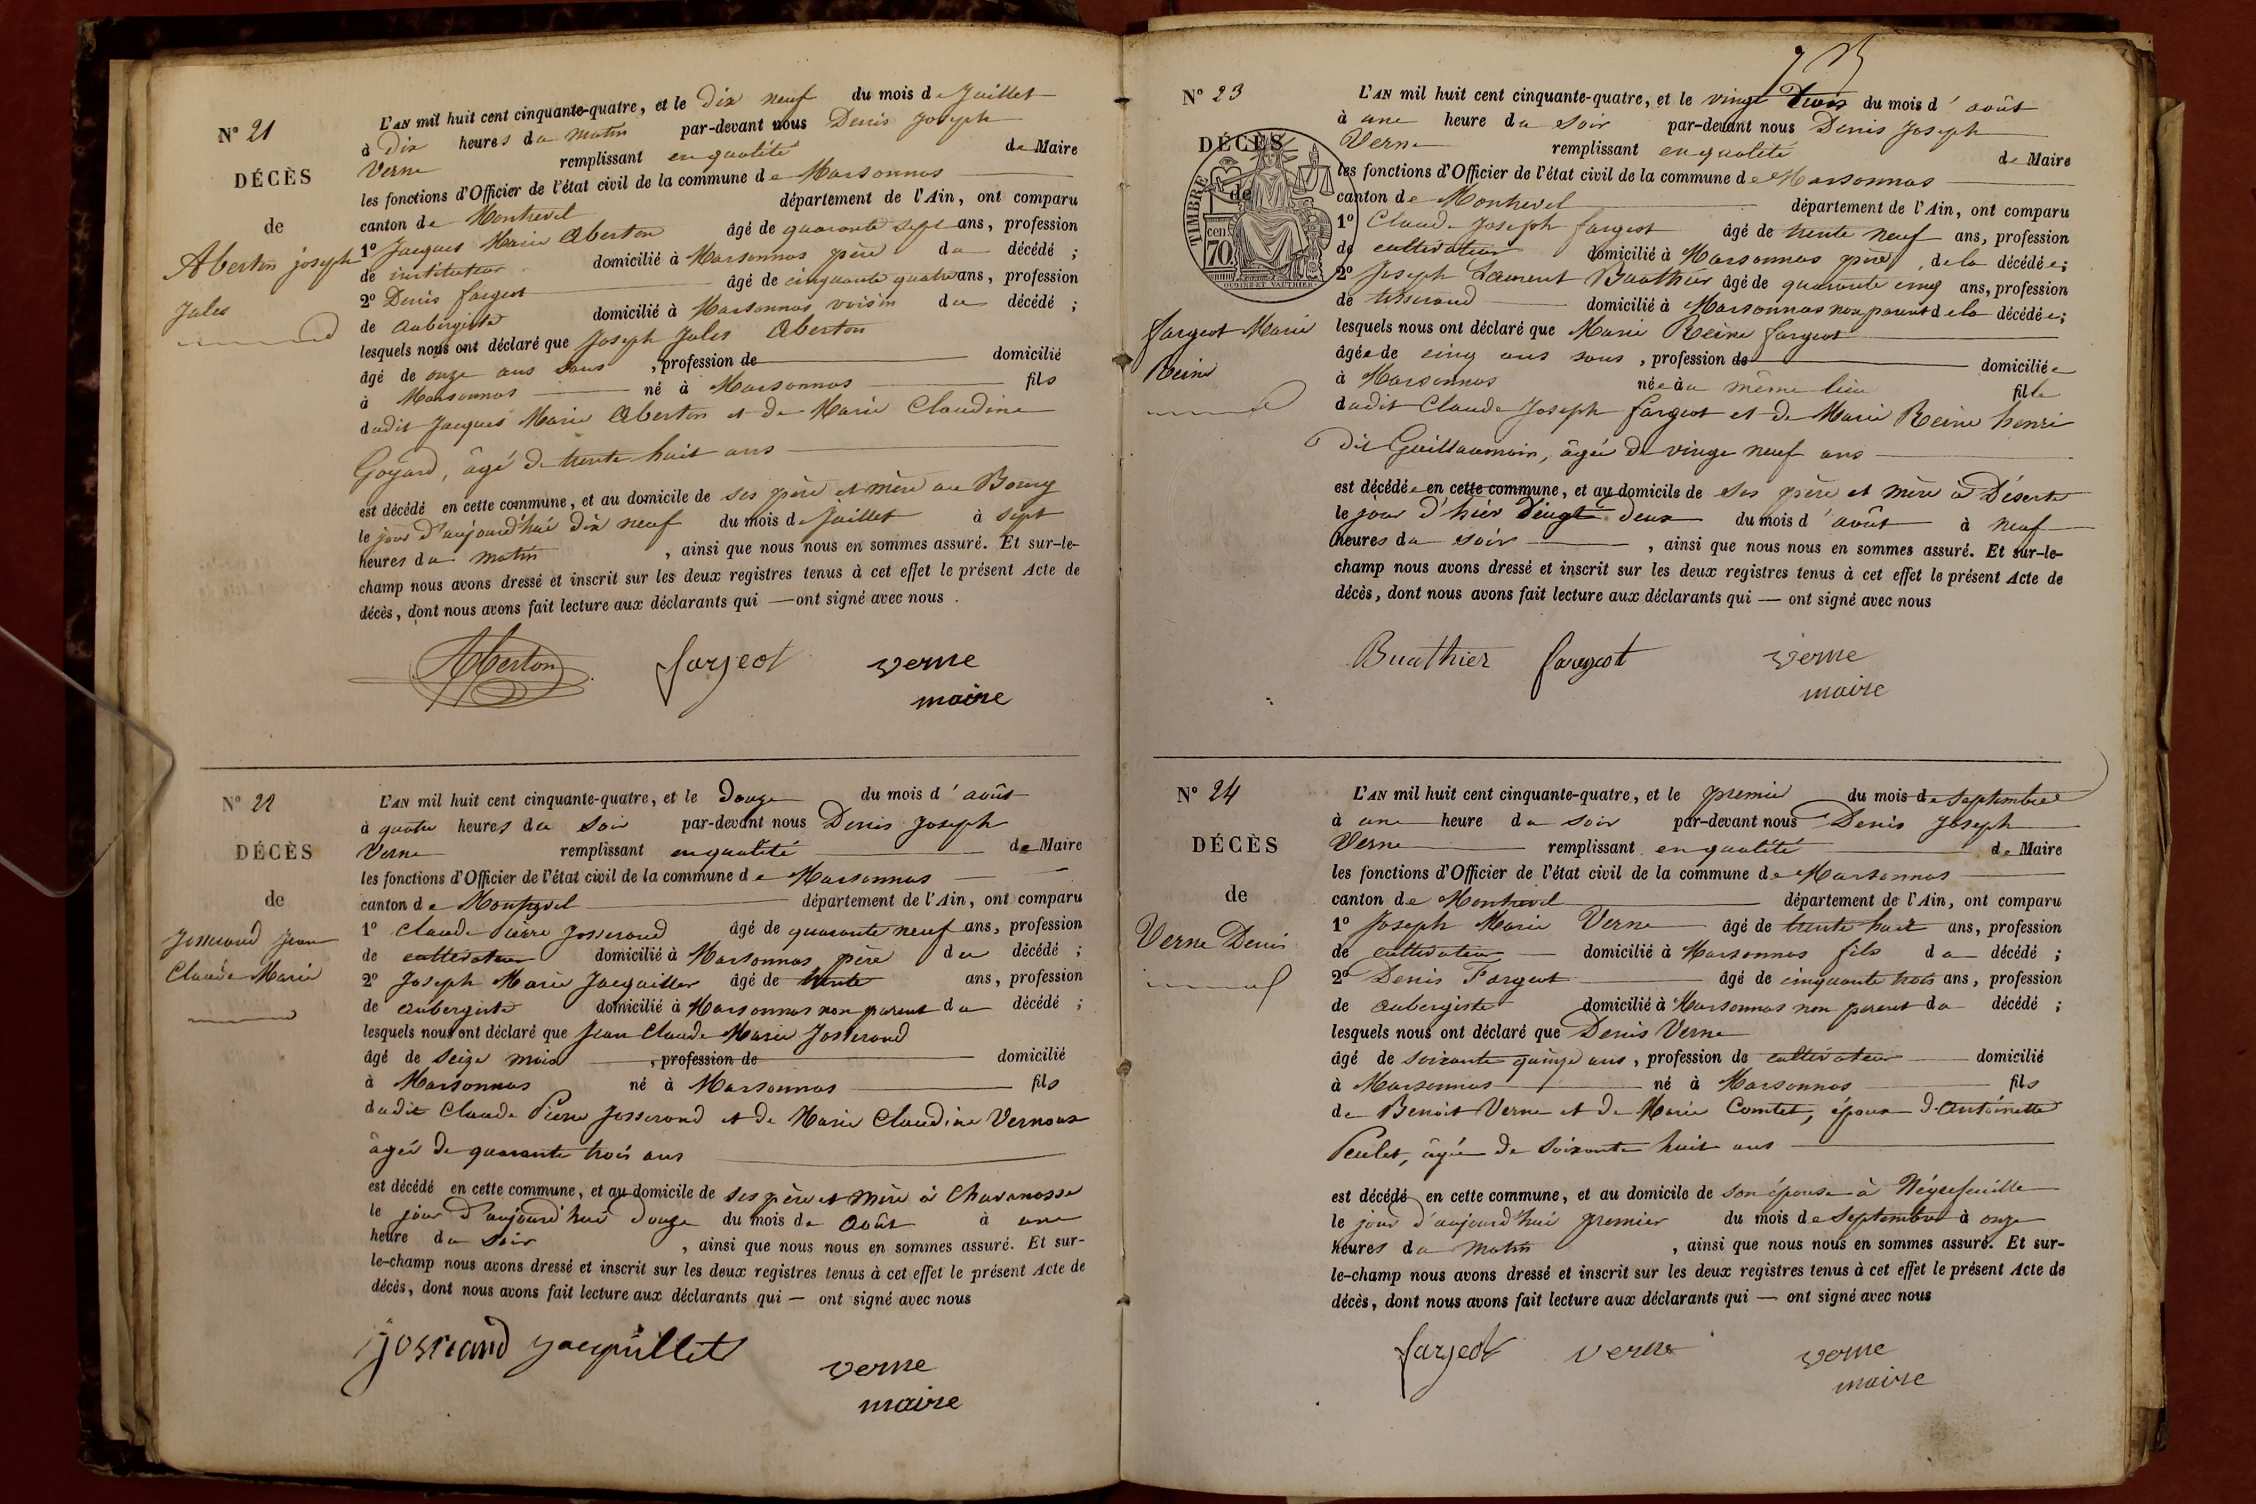 N° 21
DÉCÈS
de
Aberton joseph
Jules
L'AN mil huit cent cinquante-quatre, et le dix neuf du mois de Juillet
à dix heures du matin par-devant nous Denis Joseph
Verne remplissant en qualité de Maire
les fonctions d'Officier de l'état civil de la commune de Marsonnas
canton de Montrevel département de l'Ain, ont comparu
1° Jacques Marie Aberton âgé de quarante sept ans, profession
de instituteur domicilié à Marsonnas père du décédé ;
2° Denis fargeot âgé de cinquante quatre ans, profession
de aubergiste domicilié à Marsonnas voisin du décédé ;
lesquels nous ont déclaré que Joseph Jules Aberton
âgé de onze ans sans , profession de domicilié
à Marsonnas né à Marsonnas fils
dudit Jacques Marie Aberton et de Marie Claudine
Goyard, âgé de trente huit ans
est décédé en cette commune, et au domicile de ses père et mère au Bourg
le jour d'aujourd'hui dix neuf du mois de Juillet à sept
heures du matin , ainsi que nous nous en sommes assuré. Et sur-le-
champ nous avons dressé et inscrit sur les deux registres tenus à cet effet le présent Acte de
décès, dont nous avons fait lecture aux déclarants qui — ont signé avec nous .
Aberton fargeot verne
maire
N° 22
DÉCÈS
de
Josserand Jean
Claude Marie
L'AN mil huit cent cinquante-quatre, et le douze du mois d'août
à quatre heures du soir par-devant nous Denis Joseph
Verne remplissant en qualité de Maire
les fonctions d'Officier de l'état civil de la commune de Marsonnas
canton de Montrevel département de l'Ain, ont comparu
1° Claude Pierre Josserand âgé de quarante neuf ans, profession
de cultivateur domicilié à Marsonnas père du décédé ;
2° Joseph Marie Jacquillet âgé de trente ans, profession
de aubergiste domicilié à Marsonnas non parent du décédé ;
lesquels nous ont déclaré que Jean Claude Marie Josserand
âgé de seize mois , profession de domicilié
à Marsonnas né à Marsonnas fils
dudit Claude Pierre Josserand et de Marie Claudine Vernoux
âgée de quarante trois ans
est décédé en cette commune, et au domicile de ses père et mère à Chavanosse
le jour d'aujourd'hui douze du mois de Août à une
heure du soir , ainsi que nous nous en sommes assuré. Et sur-
le-champ nous avons dressé et inscrit sur les deux registres tenus à cet effet le présent Acte de
décès, dont nous avons fait lecture aux déclarants qui — ont signé avec nous
Josserand Jacquillet verne
maire
N° 23
DÉCÈS
de
TIMBRE
70 cen.
OUDINE ET VAUTHIER
fargeot Marie
Reine
L'AN mil huit cent cinquante-quatre, et le vingt trois du mois d'août
à une heure du soir par-devant nous Denis Joseph
Verne remplissant en qualité de Maire
les fonctions d'Officier de l'état civil de la commune de Marsonnas
canton de Montrevel département de l'Ain, ont comparu
1° Claude Joseph fargeot âgé de trente neuf ans, profession
de cultivateur domicilié à Marsonnas père, de la décédée;
2° Joseph Laurent Buathier âgé de quarante cinq ans, profession
de tisserand domicilié à Marsonnas non parent de la décédée;
lesquels nous ont déclaré que Marie Reine fargeot
âgée de cinq ans sans , profession de domiciliée
à Marsonnas née au même lieu fille
dudit Claude Joseph fargeot et de Marie Reine henri
dit Guillaumain, âgée de vingt neuf ans
est décédée en cette commune, et au domicile de ses père et mère à Déserte
le jour d'hier vingt deux du mois d'août à neuf
heures du soir , ainsi que nous nous en sommes assuré. Et sur-le-
champ nous avons dressé et inscrit sur les deux registres tenus à cet effet le présent Acte de
décès, dont nous avons fait lecture aux déclarants qui — ont signé avec nous
Buathier fargeot verne
maire
N° 24
DÉCÈS
de
Verne Denis
L'AN mil huit cent cinquante-quatre, et le premier du mois de septembre
à une heure du soir par-devant nous Denis Joseph
Verne remplissant en qualité de Maire
les fonctions d'Officier de l'état civil de la commune de Marsonnas
canton de Montrevel département de l'Ain, ont comparu
1° Joseph Marie Verne âgé de trente huit ans, profession
de cultivateur domicilié à Marsonnas fils du décédé ;
2° Denis Fargeot âgé de cinquante trois ans, profession
de aubergiste domicilié à Marsonnas non parent du décédé ;
lesquels nous ont déclaré que Denis Verne
âgé de soixante quinze ans, profession de cultivateur domicilié
à Marsonnas né à Marsonnas fils
de Benoit Verne et de Marie Comtet, époux d'Antoinette
Peulet, âgée de soixante huit ans
est décédé en cette commune, et au domicile de son épouse à Négrefeuille
le jour d'aujourd'hui premier du mois de Septembre à onze
heures du matin , ainsi que nous nous en sommes assuré. Et sur-
le-champ nous avons dressé et inscrit sur les deux registres tenus à cet effet le présent Acte de
décès, dont nous avons fait lecture aux déclarants qui — ont signé avec nous
fargeot verne verne
maire